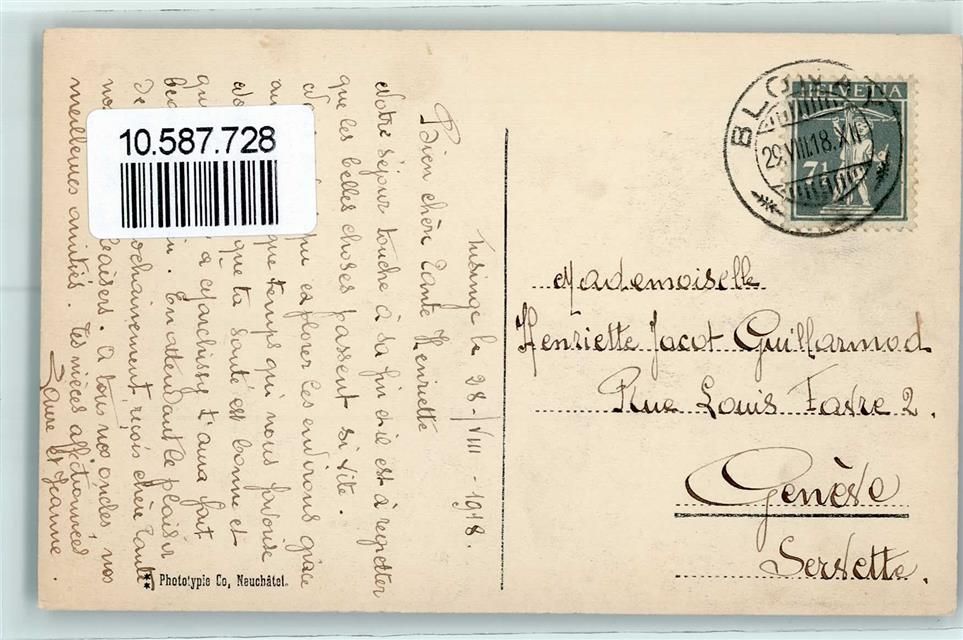 10.587.728
Lusinge le 28-/VIII - 1918.
Bien chère Tante Henriette
Notre séjour touche à sa fin et il est à regretter
que les belles choses passent si vite.
pu explorer les environs grâce
au que temps qui nous favorise
que ta santé est bonne et
qu à Marchissy t'aura fait
En attendant le plaisir
De prochainement, reçois chère tante
nos baisers. A tous nos oncles, nos
meilleures amitiés. Tes nièces affectionnées
Laure et Jeanne.
Phototypie Co, Neuchâtel.
BLONAY
29.VIII.18.XI
HELVETIA
7½
Mademoiselle
Henriette Jacot Guillarmod
Rue Louis Favre 2.
Genève
Servette.